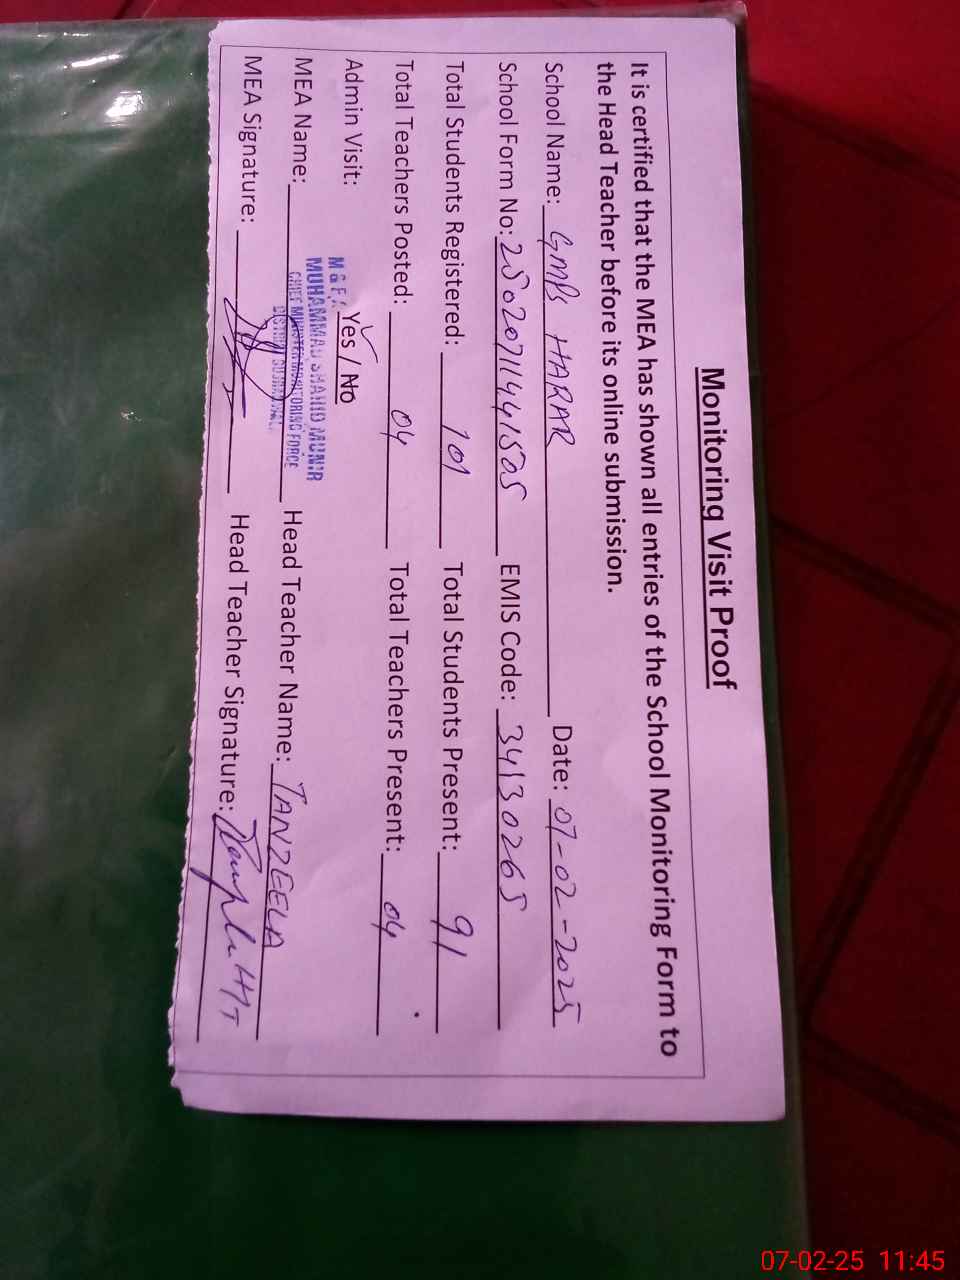 Monitoring Visit Proof
It is certified that the MEA has shown all entries of the School Monitoring Form to
the Head Teacher before its online submission.
School Name: GMPS HARAR Date: 07-02-2025
School Form No: 25020711441505 EMIS Code: 34130265
Total Students Registered: 101 Total Students Present: 91
Total Teachers Posted: 04 Total Teachers Present: 04
Admin Visit: Yes / No
M & E A
MUHAMMAD SHAHID MUNIR
CHIEF MINISTER MONITORING FORCE
DISTRICT GUJRANWALA
MEA Name: Head Teacher Name: TANZEELA
MEA Signature: Head Teacher Signature:
07-02-25 11:45